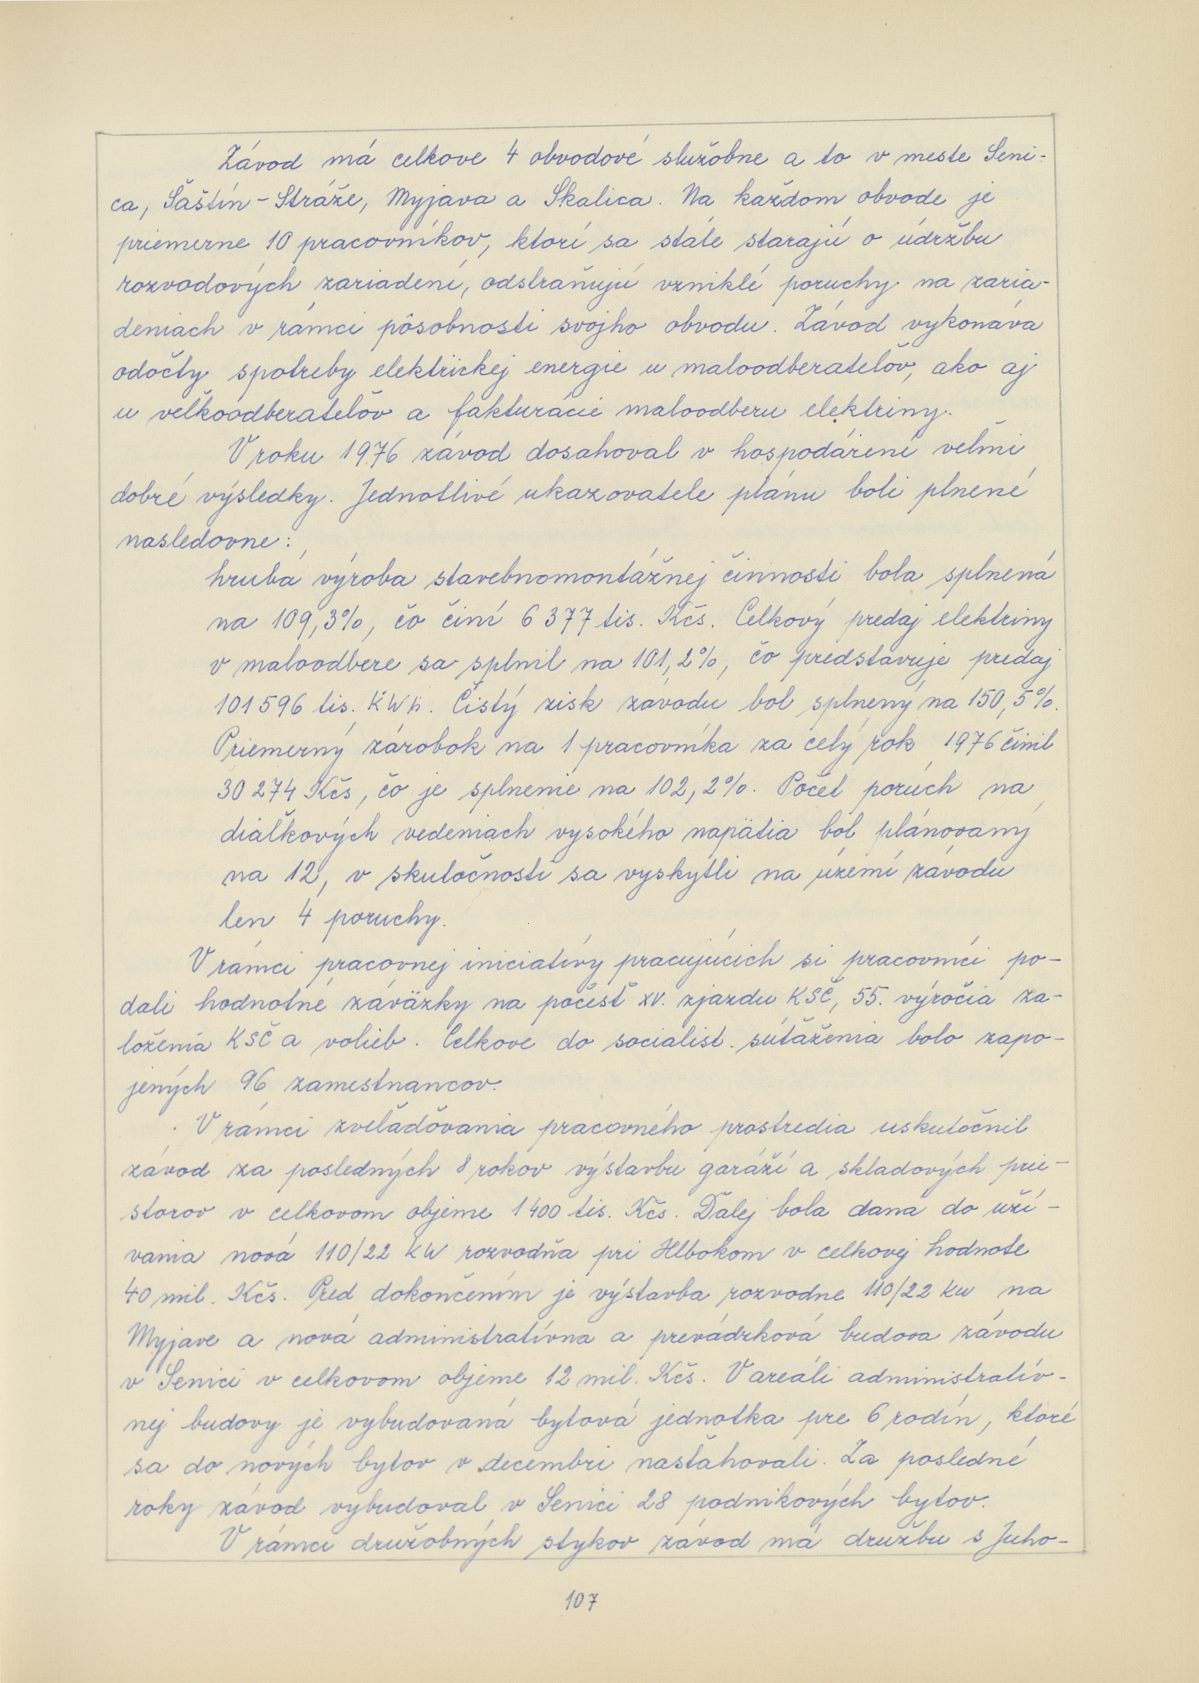 Závod má celkove 4 obvodové služobne a to v meste Seni-
ca, Šaštín-Stráže, Myjava a Skalica. Na každom obvode je
priemerne 10 pracovníkov, ktorí sa stále starajú o údržbu
rozvodových zariadení, odstraňujú vzniklé poruchy na zaria-
deniach v rámci pôsobnosti svojho obvodu. Závod vykonáva
odočty spotreby elektrickej energie u maloodberateľov, ako aj
u veľkoodberateľov a fakturácie maloodberu elektriny.
V roku 1976 závod dosahoval v hospodárení veľmi
dobré výsledky. Jednotlivé ukazovatele plánu boli plnené
nasledovne:
hrubá výroba stavebnomontážnej činnosti bola splnená
na 109,3%, čo činí 6 377 tis. Kčs. Celkový predaj elektriny
v maloodbere sa splnil na 101,2%, čo predstavuje predaj
101 596 tis. KWh. Čistý zisk závodu bol splnený na 150,5%.
Priemerný zárobok na 1 pracovníka za celý rok 1976 činil
30 274 Kčs, čo je splnenie na 102,2%. Počet porúch na
diaľkových vedeniach vysokého napätia bol plánovaný
na 12, v skutočnosti sa vyskytli na území závodu
len 4 poruchy.
V rámci pracovnej iniciatívy pracujúcich si pracovníci po-
dali hodnotné záväzky na počesť XV. zjazdu KSČ, 55. výročia za-
loženia KSČ a volieb. Celkove do socialist. súťaženia bolo zapo-
jených 96 zamestnancov.
V rámci zveľaďovania pracovného prostredia uskutočnil
závod za posledných 8 rokov výstavbu garáží a skladových prie-
storov v celkovom objeme 1400 tis. Kčs. Ďalej bola daná do uží-
vania nová 110/22 kW rozvodňa pri Hlbokom v celkovej hodnote
40 mil. Kčs. Pred dokončením je výstavba rozvodne 110/22 kW na
Myjave a nová administratívna a prevádzková budova závodu
v Senici v celkovom objeme 12 mil. Kčs. V areáli administratív-
nej budovy je vybudovaná bytová jednotka pre 6 rodín, ktoré
sa do nových bytov v decembri nasťahovali. Za posledné
roky závod vybudoval v Senici 28 podnikových bytov.
V rámci družobných stykov závod má družbu s Juho-
107